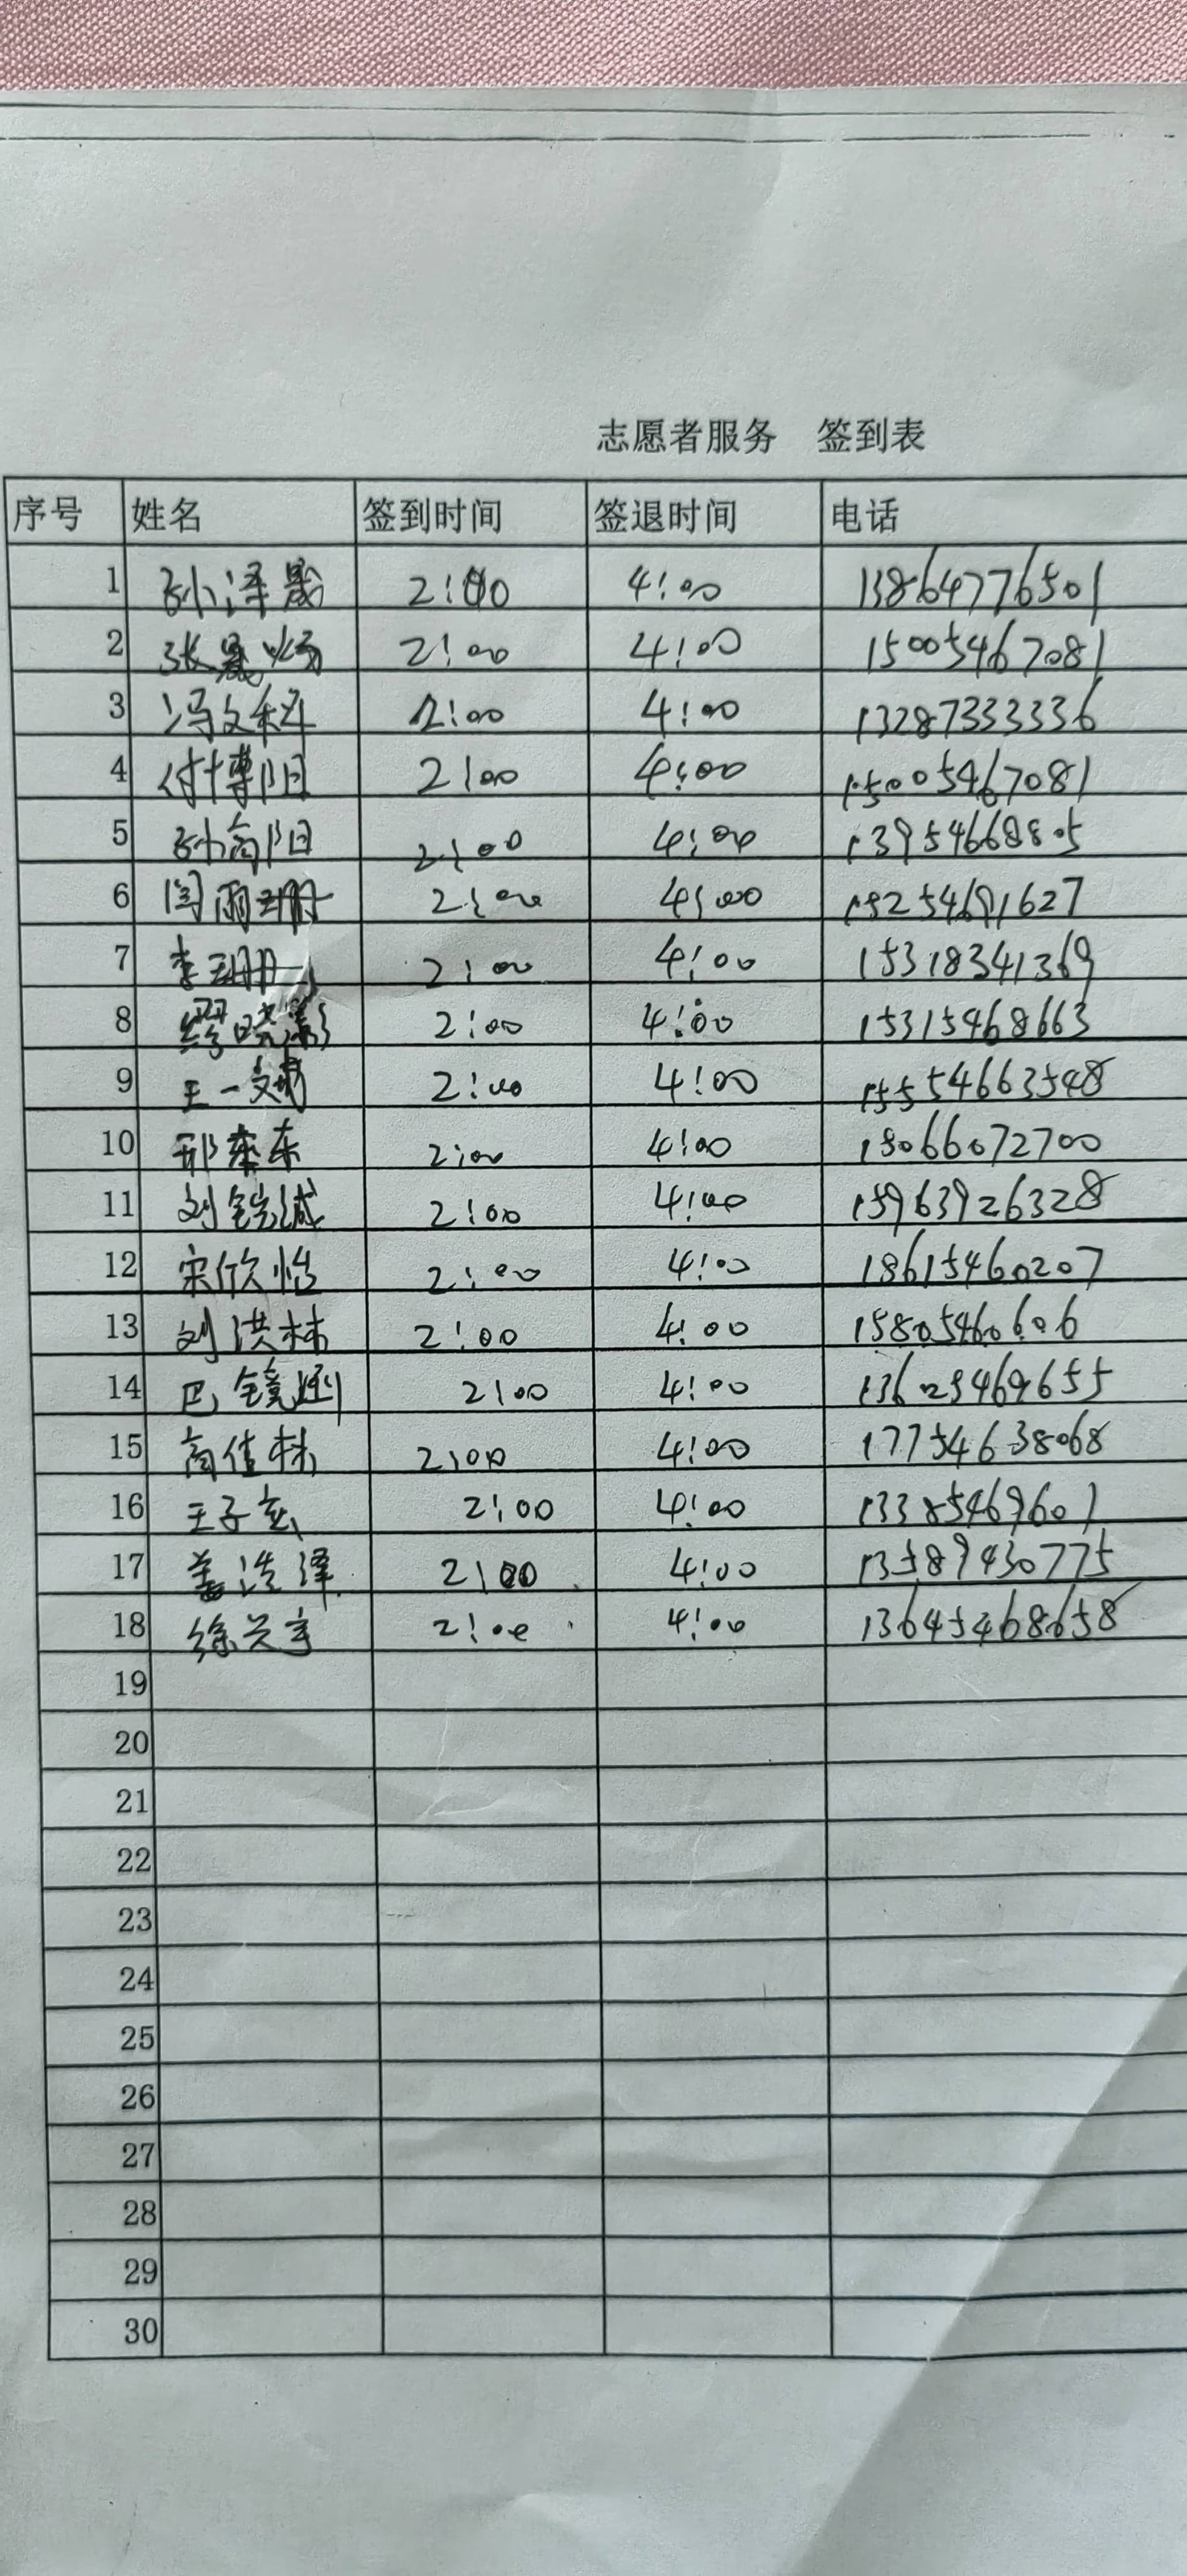 志愿者服务 签到表
序号 姓名 签到时间 签退时间 电话
1 孙泽晟 2:00 4:00 13864776501
2 张晟炀 2:00 4:00 15005467081
3 冯文科 2:00 4:00 13287333336
4 付博阳 2:00 4:00 15005467081
5 孙高阳 2:00 4:00 13954668805
6 闫雨珊 2:00 4:00
7 李珊珊 2:00 4:00 15318341369
8 缪晓 2:00 4:00 15315468663
9 王一 2:00 4:00 15554663548
10 邢 东 2:00 4:00 15066072700
11 刘铠诚 2:00 4:00 15963926328
12 宋欣怡 2:00 4:00 18615460207
13 刘洪林 2:00 4:00 15805460606
14 巴镜 2:00 4:00
15 高佳林 2:00 4:00 17754638068
16 王子 2:00 4:00 13385469601
17 姜浩泽 2:00 4:00 13589430775
18 徐兴宇 2:00 4:00 13645468658
19
20
21
22
23
24
25
26
27
28
29
30